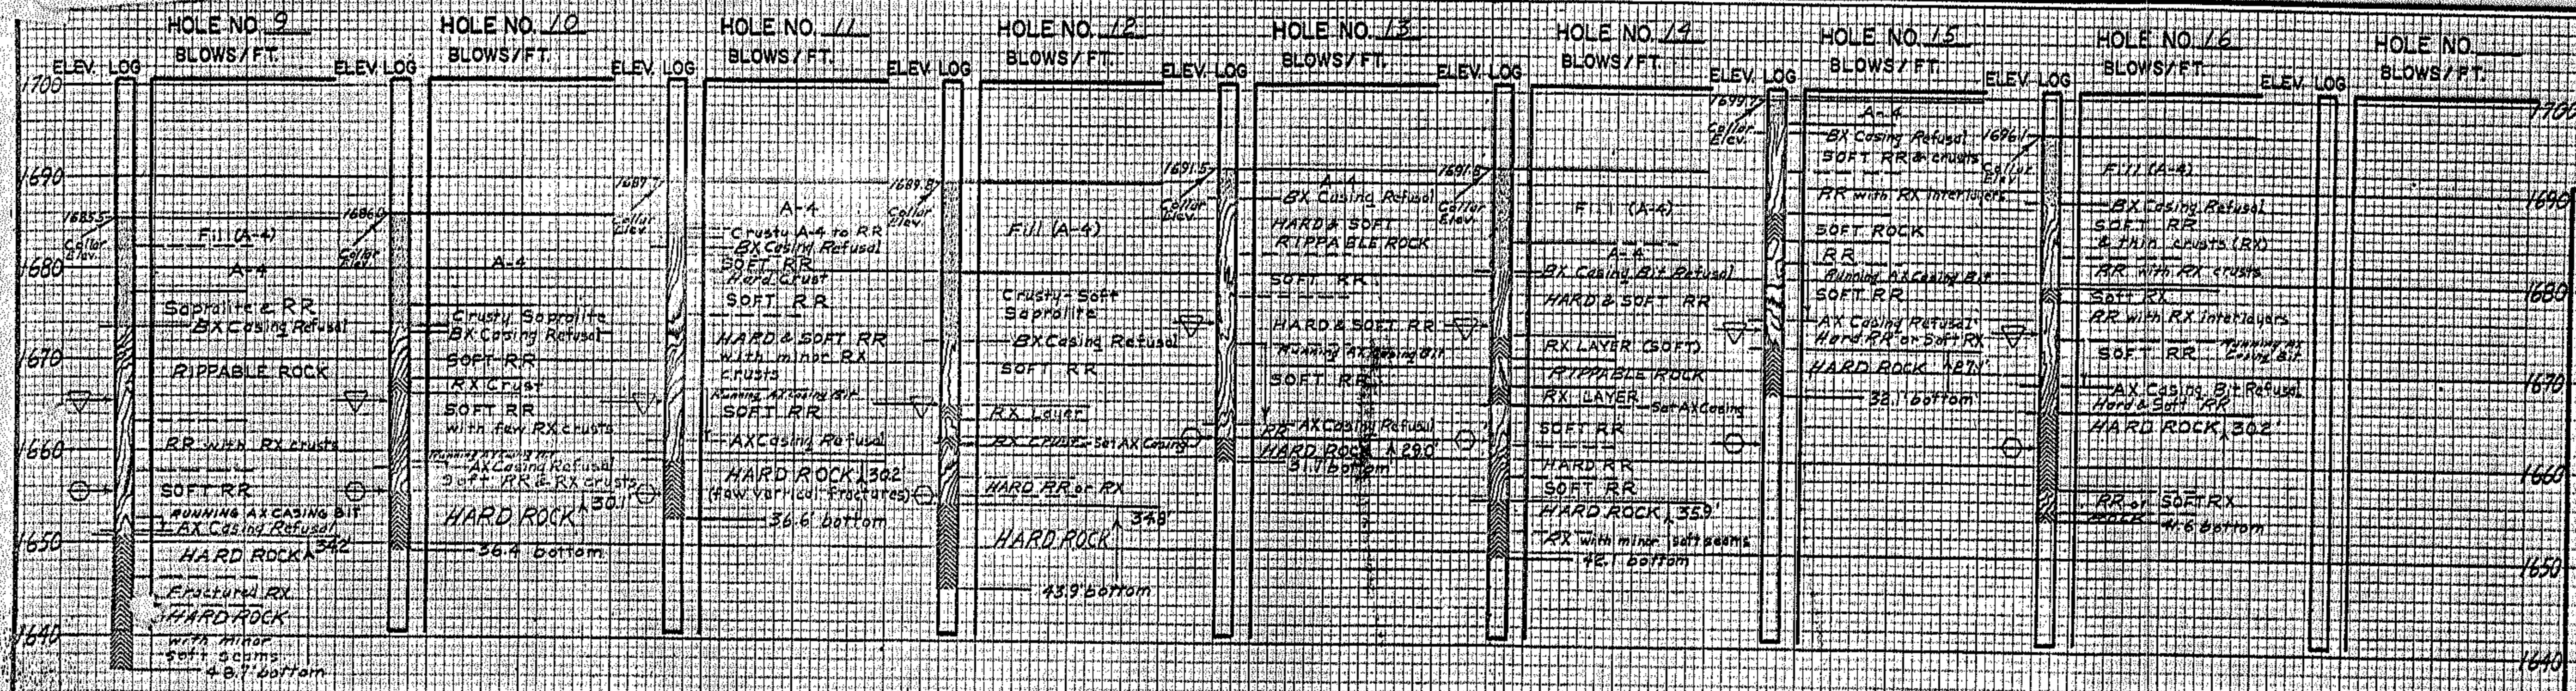 HOLE NO. 9
BLOWS/FT.
ELEV. LOG
1700
1690
1685.5
Collar
Elev.
Fill (A-4)
1680
A-4
Saprolite & RR
BX Casing Refusal
1670
RIPPABLE ROCK
RR with RX crusts
1660
SOFT RR
RUNNING AX CASING BIT
AX Casing Refusal
1650
HARD ROCK 34.2'
Fractured RX
HARD ROCK
1640
with minor
soft seams
48.7' bottom
HOLE NO. 10
BLOWS/FT.
ELEV. LOG
1686.0
Collar
Elev.
A-4
Crusty Saprolite
BX Casing Refusal
SOFT RR
RX Crust
SOFT RR
with few RX crusts
Running AX Casing Bit
AX Casing Refusal
Soft RR & RX crusts
30.1'
HARD ROCK
36.4 bottom
HOLE NO. 11
BLOWS/FT.
ELEV. LOG
1689.7
Collar
Elev.
A-4
Crusty A-4 to RR
BX Casing Refusal
SOFT RR
Hard Crust
SOFT RR
HARD & SOFT RR
with minor RX
crusts
Running AX Casing Bit
SOFT RR
AX Casing Refusal
HARD ROCK 30.2
(few vertical fractures)
36.6' bottom
HOLE NO. 12
BLOWS/FT.
ELEV. LOG
1689.8
Collar
Elev.
Fill (A-4)
Crusty-Soft
Saprolite
BX Casing Refusal
SOFT RR
RX Layer
RX Crust-Set AX Casing
HARD RR or RX
34.8'
HARD ROCK
43.9' bottom
HOLE NO. 13
BLOWS/FT.
ELEV. LOG
1691.5
Collar
Elev.
A-4
BX Casing Refusal
HARD & SOFT
RIPPABLE ROCK
SOFT RR
HARD & SOFT RR
Running AX Casing Bit
SOFT RR
AX Casing Refusal
RR
HARD ROCK 29.0'
31.7' bottom
HOLE NO. 14
BLOWS/FT.
ELEV. LOG
1691.8
Collar
Elev.
Fill (A-4)
A-4
BX Casing Bit Refusal
HARD & SOFT RR
RX LAYER (SOFT)
RIPPABLE ROCK
RX LAYER
Set AX Casing
SOFT RR
HARD RR
SOFT RR
HARD ROCK 35.9'
RX with minor soft seams
42.1 bottom
HOLE NO. 15
BLOWS/FT.
ELEV. LOG
1699.7
Collar
Elev.
A-4
BX Casing Refusal
SOFT RR & crusts
RR with RX interlayers
SOFT ROCK
RR
Running AX Casing Bit
SOFT RR
AX Casing Refusal
Hard RR or Soft RX
HARD ROCK 27.1'
32.1' bottom
HOLE NO. 16
BLOWS/FT.
ELEV. LOG
1696.1
Collar
Elev.
Fill (A-4)
BX Casing Refusal
SOFT RR
& thin crusts (RX)
RR with RX crusts
Soft RX
RR with RX interlayers
SOFT RR Running AX
Casing Bit
AX Casing Bit Refusal
Hard & Soft RR
HARD ROCK 30.2'
RR or SOFT RX
ROCK 41.6 bottom
HOLE NO.
BLOWS/FT.
ELEV. LOG
1700
1690
1680
1670
1660
1650
1640